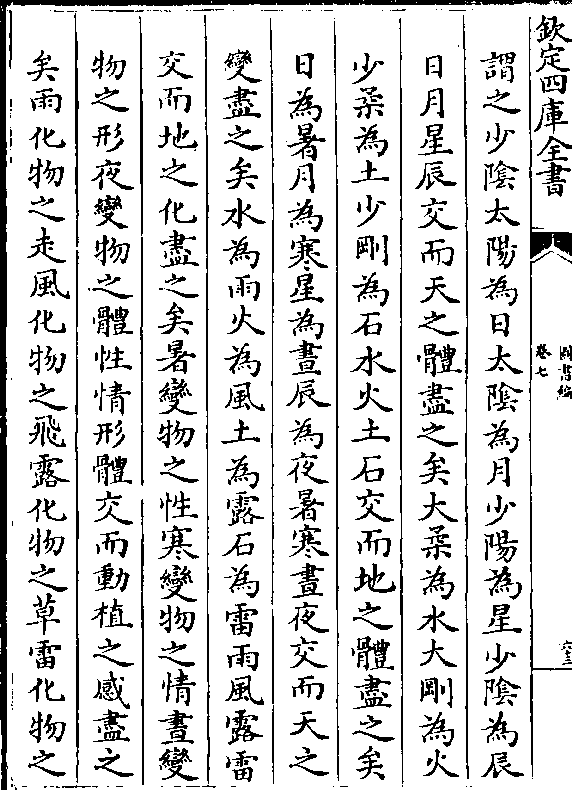 欽定四庫全書
圖書編
卷七
六三
謂之少陰太陽為日太陰為月少陽為星少陰為辰
日月星辰交而天之體盡之矣大柔為水大剛為火
少柔為土少剛為石水火土石交而地之體盡之矣
日為暑月為寒星為晝辰為夜暑寒晝夜交而天之
變盡之矣水為雨火為風土為露石為雷雨風露雷
交而地之化盡之矣暑變物之性寒變物之情晝變
物之形夜變物之體性情形體交而動植之感盡之
矣雨化物之走風化物之飛露化物之草雷化物之